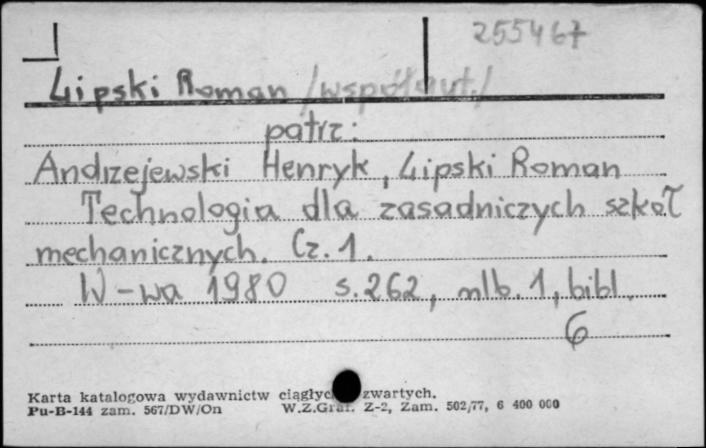 255467
Lipski Roman /współaut./
patrz:
Andrzejewski Henryk, Lipski Roman
Technologia dla zasadniczych szkół
mechanicznych. Cz. 1.
W-wa 1980 s. 262, nlb. 1, bibl.
6
Karta katalogowa wydawnictw zwartych.
Pu-B-144 zam. 567/DW/On W.Z.Graf. Z-2, Zam. 502/77, 6 400 000